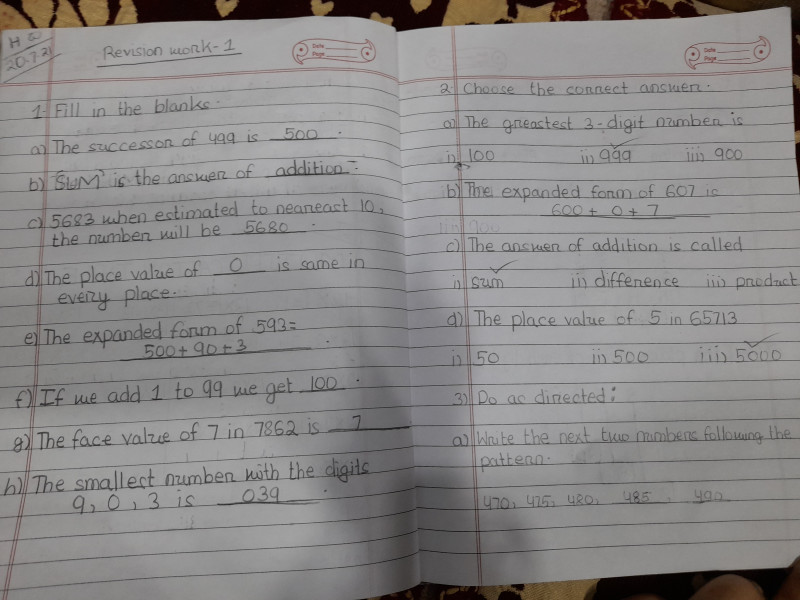 H W
20.7.21
Revision work-1
Date
Page
1. Fill in the blanks.
a) The successor of 499 is 500.
b) "SUM" is the answer of addition.
c) 5683 when estimated to neareast 10,
the number will be 5680.
d) The place value of 0 is same in
every place.
e) The expanded form of 593=
500+90+3.
f) If we add 1 to 99 we get 100.
g) The face value of 7 in 7862 is 7
h) The smallest number with the digits
9, 0, 3 is 039.
Date
Page
2. Choose the correct answer.
a) The greastest 3-digit number is
i) 100 ii) 999 iii) 900
b) The expanded form of 607 is
600 + 0 + 7
c) The answer of addition is called
i) sum ii) difference iii) product
d) The place value of 5 in 65713
i) 50 ii) 500 iii) 5000
3) Do as directed:
a) Write the next two numbers following the
pattern.
470, 475, 480, 485, 490